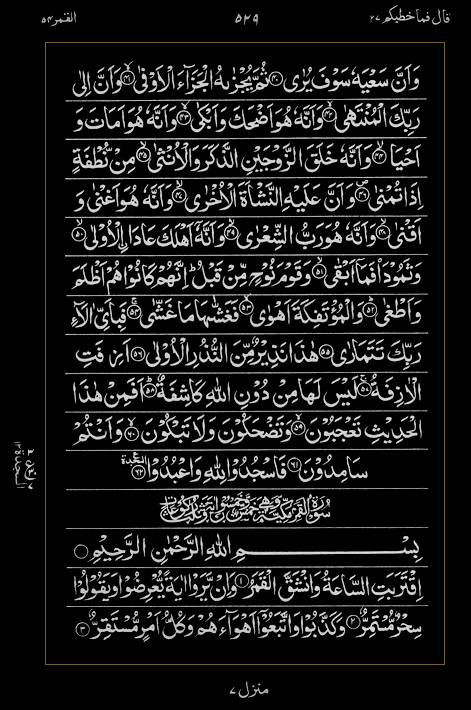 قال فما خطبكم ٢٧ ٥٢٩ القمر ٥٤
وَاَنَّ سَعْيَهٗ سَوْفَ يُرٰى ﴿٤٠﴾ ثُمَّ يُجْزٰىهُ الْجَزَآءَ الْاَوْفٰى ﴿٤١﴾ وَاَنَّ اِلٰى
رَبِّكَ الْمُنْتَهٰى ﴿٤٢﴾ وَاَنَّهٗ هُوَ اَضْحَكَ وَاَبْكٰى ﴿٤٣﴾ وَاَنَّهٗ هُوَ اَمَاتَ وَ
اَحْيَا ﴿٤٤﴾ وَاَنَّهٗ خَلَقَ الزَّوْجَيْنِ الذَّكَرَ وَالْاُنْثٰى ﴿٤٥﴾ مِنْ نُّطْفَةٍ
اِذَا تُمْنٰى ﴿٤٦﴾ وَاَنَّ عَلَيْهِ النَّشْاَةَ الْاُخْرٰى ﴿٤٧﴾ وَاَنَّهٗ هُوَ اَغْنٰى وَ
اَقْنٰى ﴿٤٨﴾ وَاَنَّهٗ هُوَ رَبُّ الشِّعْرٰى ﴿٤٩﴾ وَاَنَّهٗٓ اَهْلَكَ عَادَا اِۨلْاُوْلٰى ﴿٥٠﴾
وَثَمُوْدَا۟ فَمَآ اَبْقٰى ﴿٥١﴾ وَقَوْمَ نُوْحٍ مِّنْ قَبْلُ ؕ اِنَّهُمْ كَانُوْا هُمْ اَظْلَمَ
وَاَطْغٰى ﴿٥٢﴾ وَالْمُؤْتَفِكَةَ اَهْوٰى ﴿٥٣﴾ فَغَشّٰىهَا مَا غَشّٰى ﴿٥٤﴾ فَبِاَيِّ اٰلَآءِ
رَبِّكَ تَتَمَارٰى ﴿٥٥﴾ هٰذَا نَذِيْرٌ مِّنَ النُّذُرِ الْاُوْلٰى ﴿٥٦﴾ اَزِفَتِ
الْاٰزِفَةُ ﴿٥٧﴾ لَيْسَ لَهَا مِنْ دُوْنِ اللّٰهِ كَاشِفَةٌ ﴿٥٨﴾ اَفَمِنْ هٰذَا
الْحَدِيْثِ تَعْجَبُوْنَ ﴿٥٩﴾ وَتَضْحَكُوْنَ وَلَا تَبْكُوْنَ ﴿٦٠﴾ وَاَنْتُمْ
سَامِدُوْنَ ﴿٦١﴾ فَاسْجُدُوْا لِلّٰهِ وَاعْبُدُوْا ﴿٦٢﴾ السجدة
بِسْمِ اللّٰهِ الرَّحْمٰنِ الرَّحِيْمِ
اِقْتَرَبَتِ السَّاعَةُ وَانْشَقَّ الْقَمَرُ ﴿١﴾ وَاِنْ يَّرَوْا اٰيَةً يُّعْرِضُوْا وَيَقُوْلُوْا
سِحْرٌ مُّسْتَمِرٌّ ﴿٢﴾ وَكَذَّبُوْا وَاتَّبَعُوْٓا اَهْوَآءَهُمْ وَكُلُّ اَمْرٍ مُّسْتَقِرٌّ ﴿٣﴾
منزل ٧